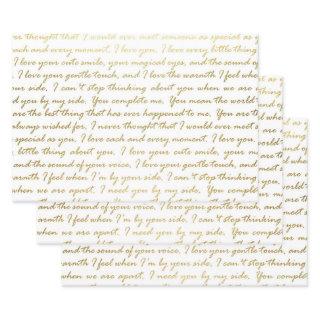 wished for, I never thought that I would ever meet someone as special as y
each and every moment. I love you, I love every little thing
, I love your cute smile, your magical eyes, and the sound of y
I love your gentle touch, and I love the warmth I feel when
your side, I can't stop thinking about you when we are a
ed you by my side, You complete me, You mean the world
are the best thing that has ever happened to me, You are
always wished for, I never thought that I would ever meet
special as you, I love each and every moment, I love you,
little thing about you, I love your cute smile, your m
and the sound of your voice, I love your gentle touch, and
warmth I feel when I'm by your side, I can't stop thinking
when we are apart, I need you by my side, You comple
and the sound of your voice, I love your gentle touch, and
feel when I'm by your side, I can't stop thinking
when we are apart, I need you by my side, You complet